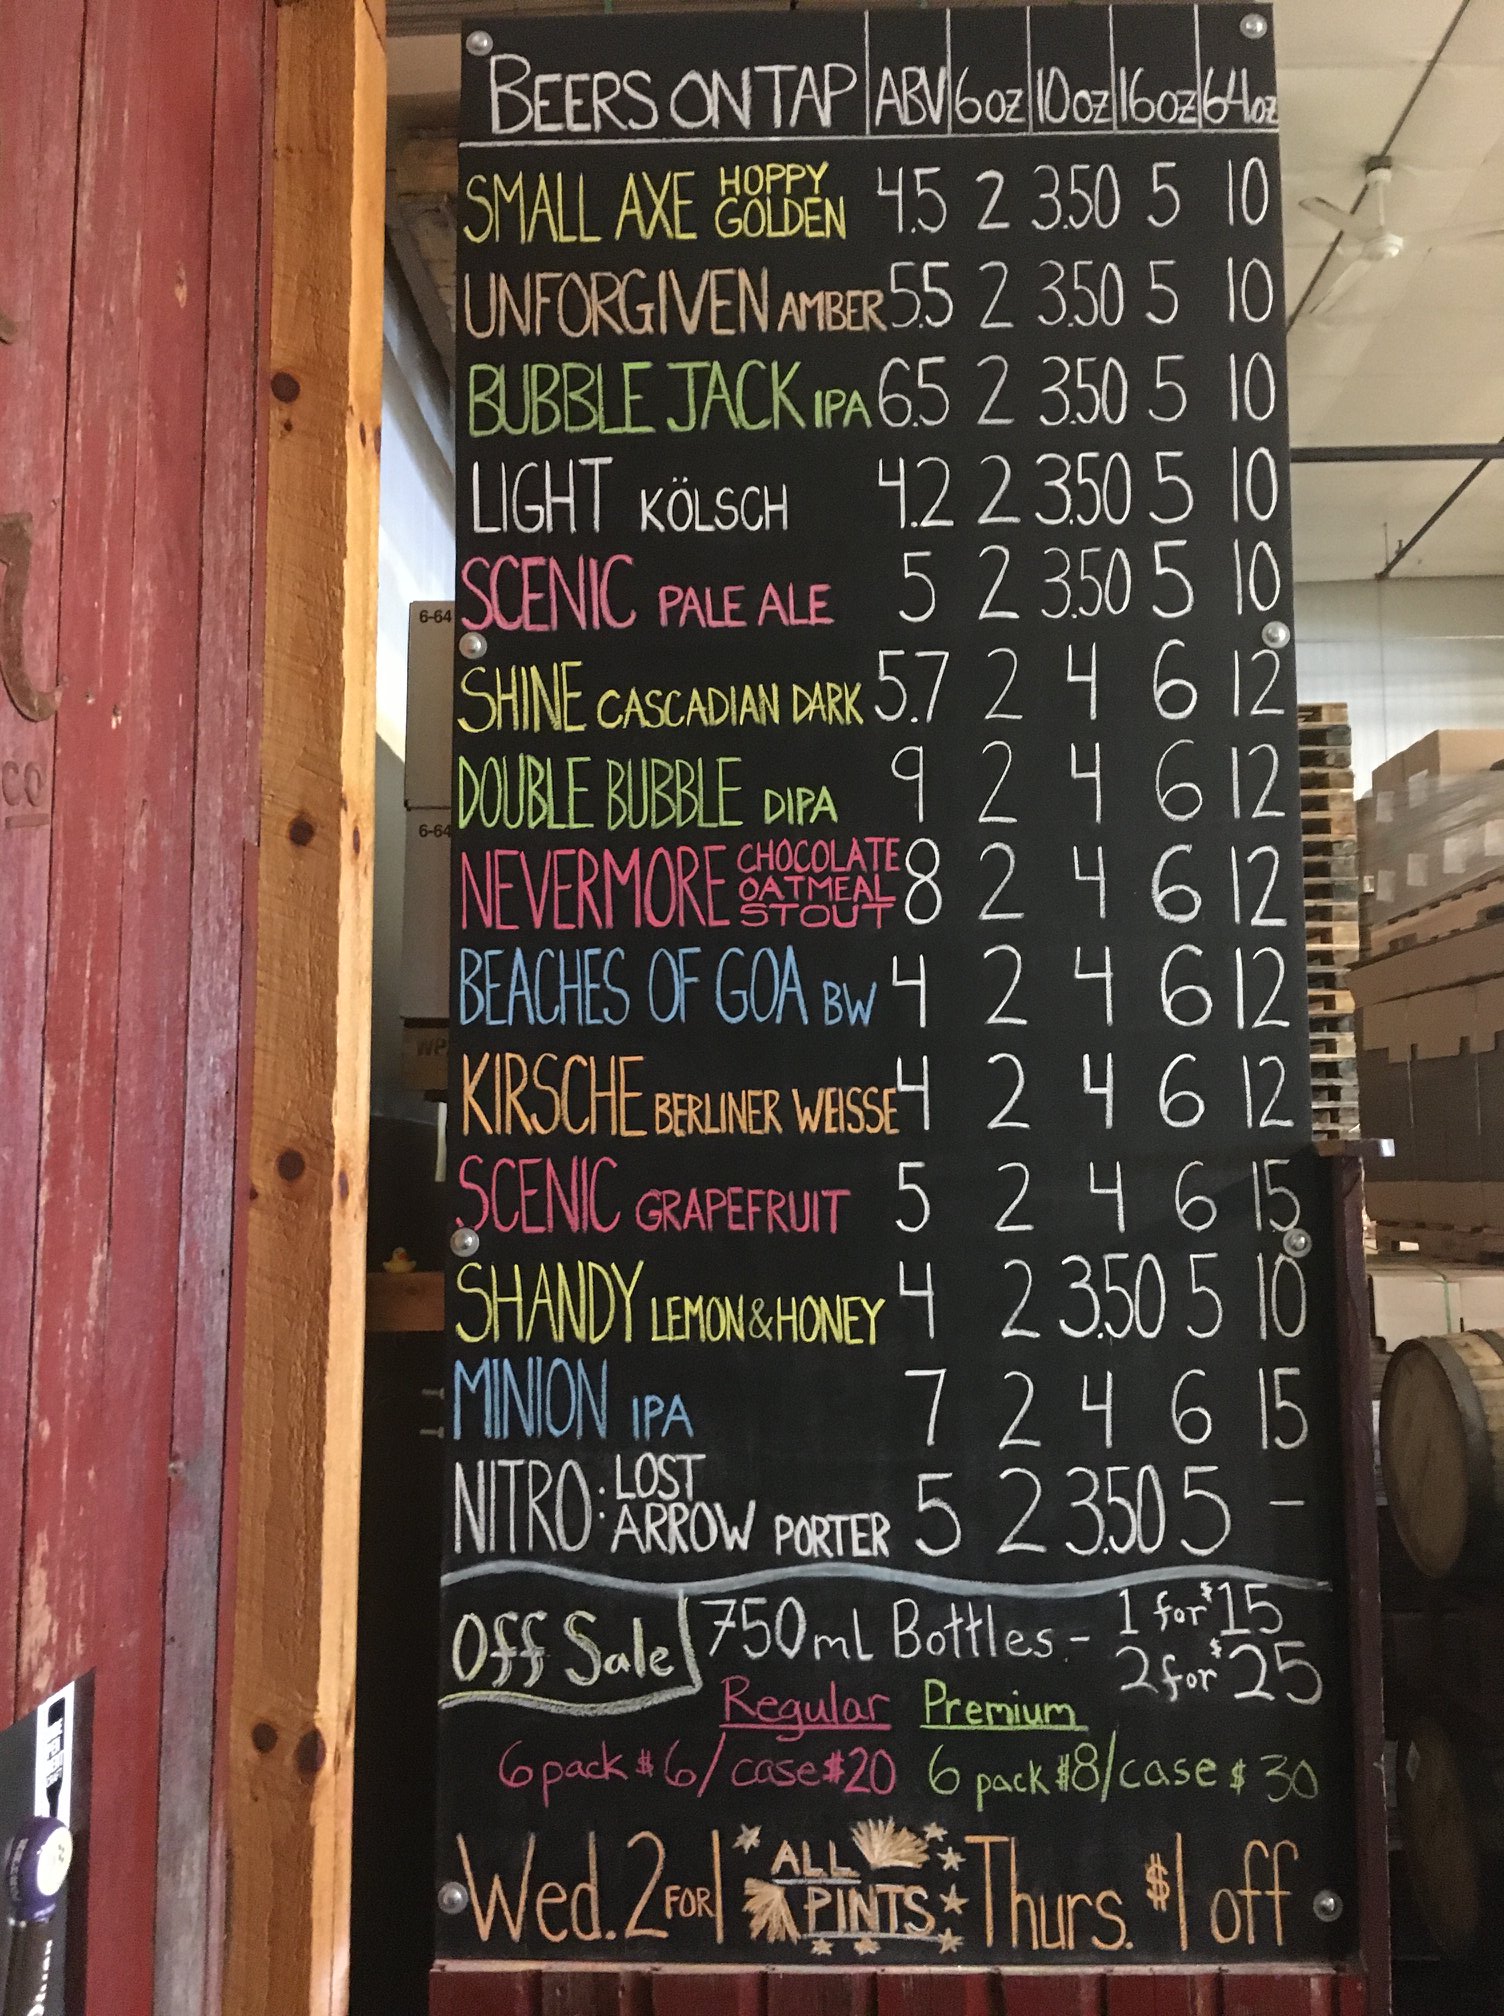 BEERS ON TAP ABV 6oz 10oz 16oz 64oz
SMALL AXE HOPPY GOLDEN 4.5 2 3.50 5 10
UNFORGIVEN AMBER 5.5 2 3.50 5 10
BUBBLE JACK IPA 6.5 2 3.50 5 10
LIGHT KÖLSCH 4.2 2 3.50 5 10
SCENIC PALE ALE 5 2 3.50 5 10
SHINE CASCADIAN DARK 5.7 2 4 6 12
DOUBLE BUBBLE DIPA 9 2 4 6 12
NEVERMORE CHOCOLATE OATMEAL STOUT 8 2 4 6 12
BEACHES OF GOA BW 4 2 4 6 12
KIRSCHE BERLINER WEISSE 4 2 4 6 12
SCENIC GRAPEFRUIT 5 2 4 6 15
SHANDY LEMON & HONEY 4 2 3.50 5 10
MINION IPA 7 2 4 6 15
NITRO: LOST ARROW PORTER 5 2 3.50 5 –
Off Sale 750mL Bottles - 1 for $15
2 for $25
Regular Premium
6 pack $6/case $20 6 pack $8/case $30
Wed. 2 FOR 1 ALL PINTS Thurs. $1 off
6-64
6-64
CO